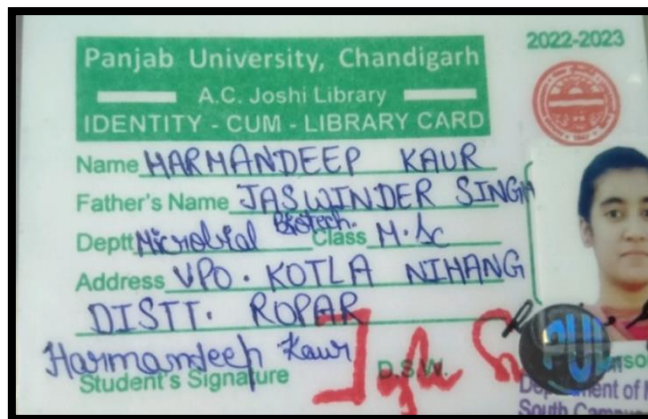 2022-2023
Panjab University, Chandigarh
A.C. Joshi Library
IDENTITY - CUM - LIBRARY CARD
Name HARMANDEEP KAUR
Father's Name JASWINDER SINGH
Deptt Microbial Biotech. Class M.Sc
Address VPO. KOTLA NIHANG
DISTT. ROPAR
Harmandeep Kaur
Student's Signature D.S.W.
South Campus